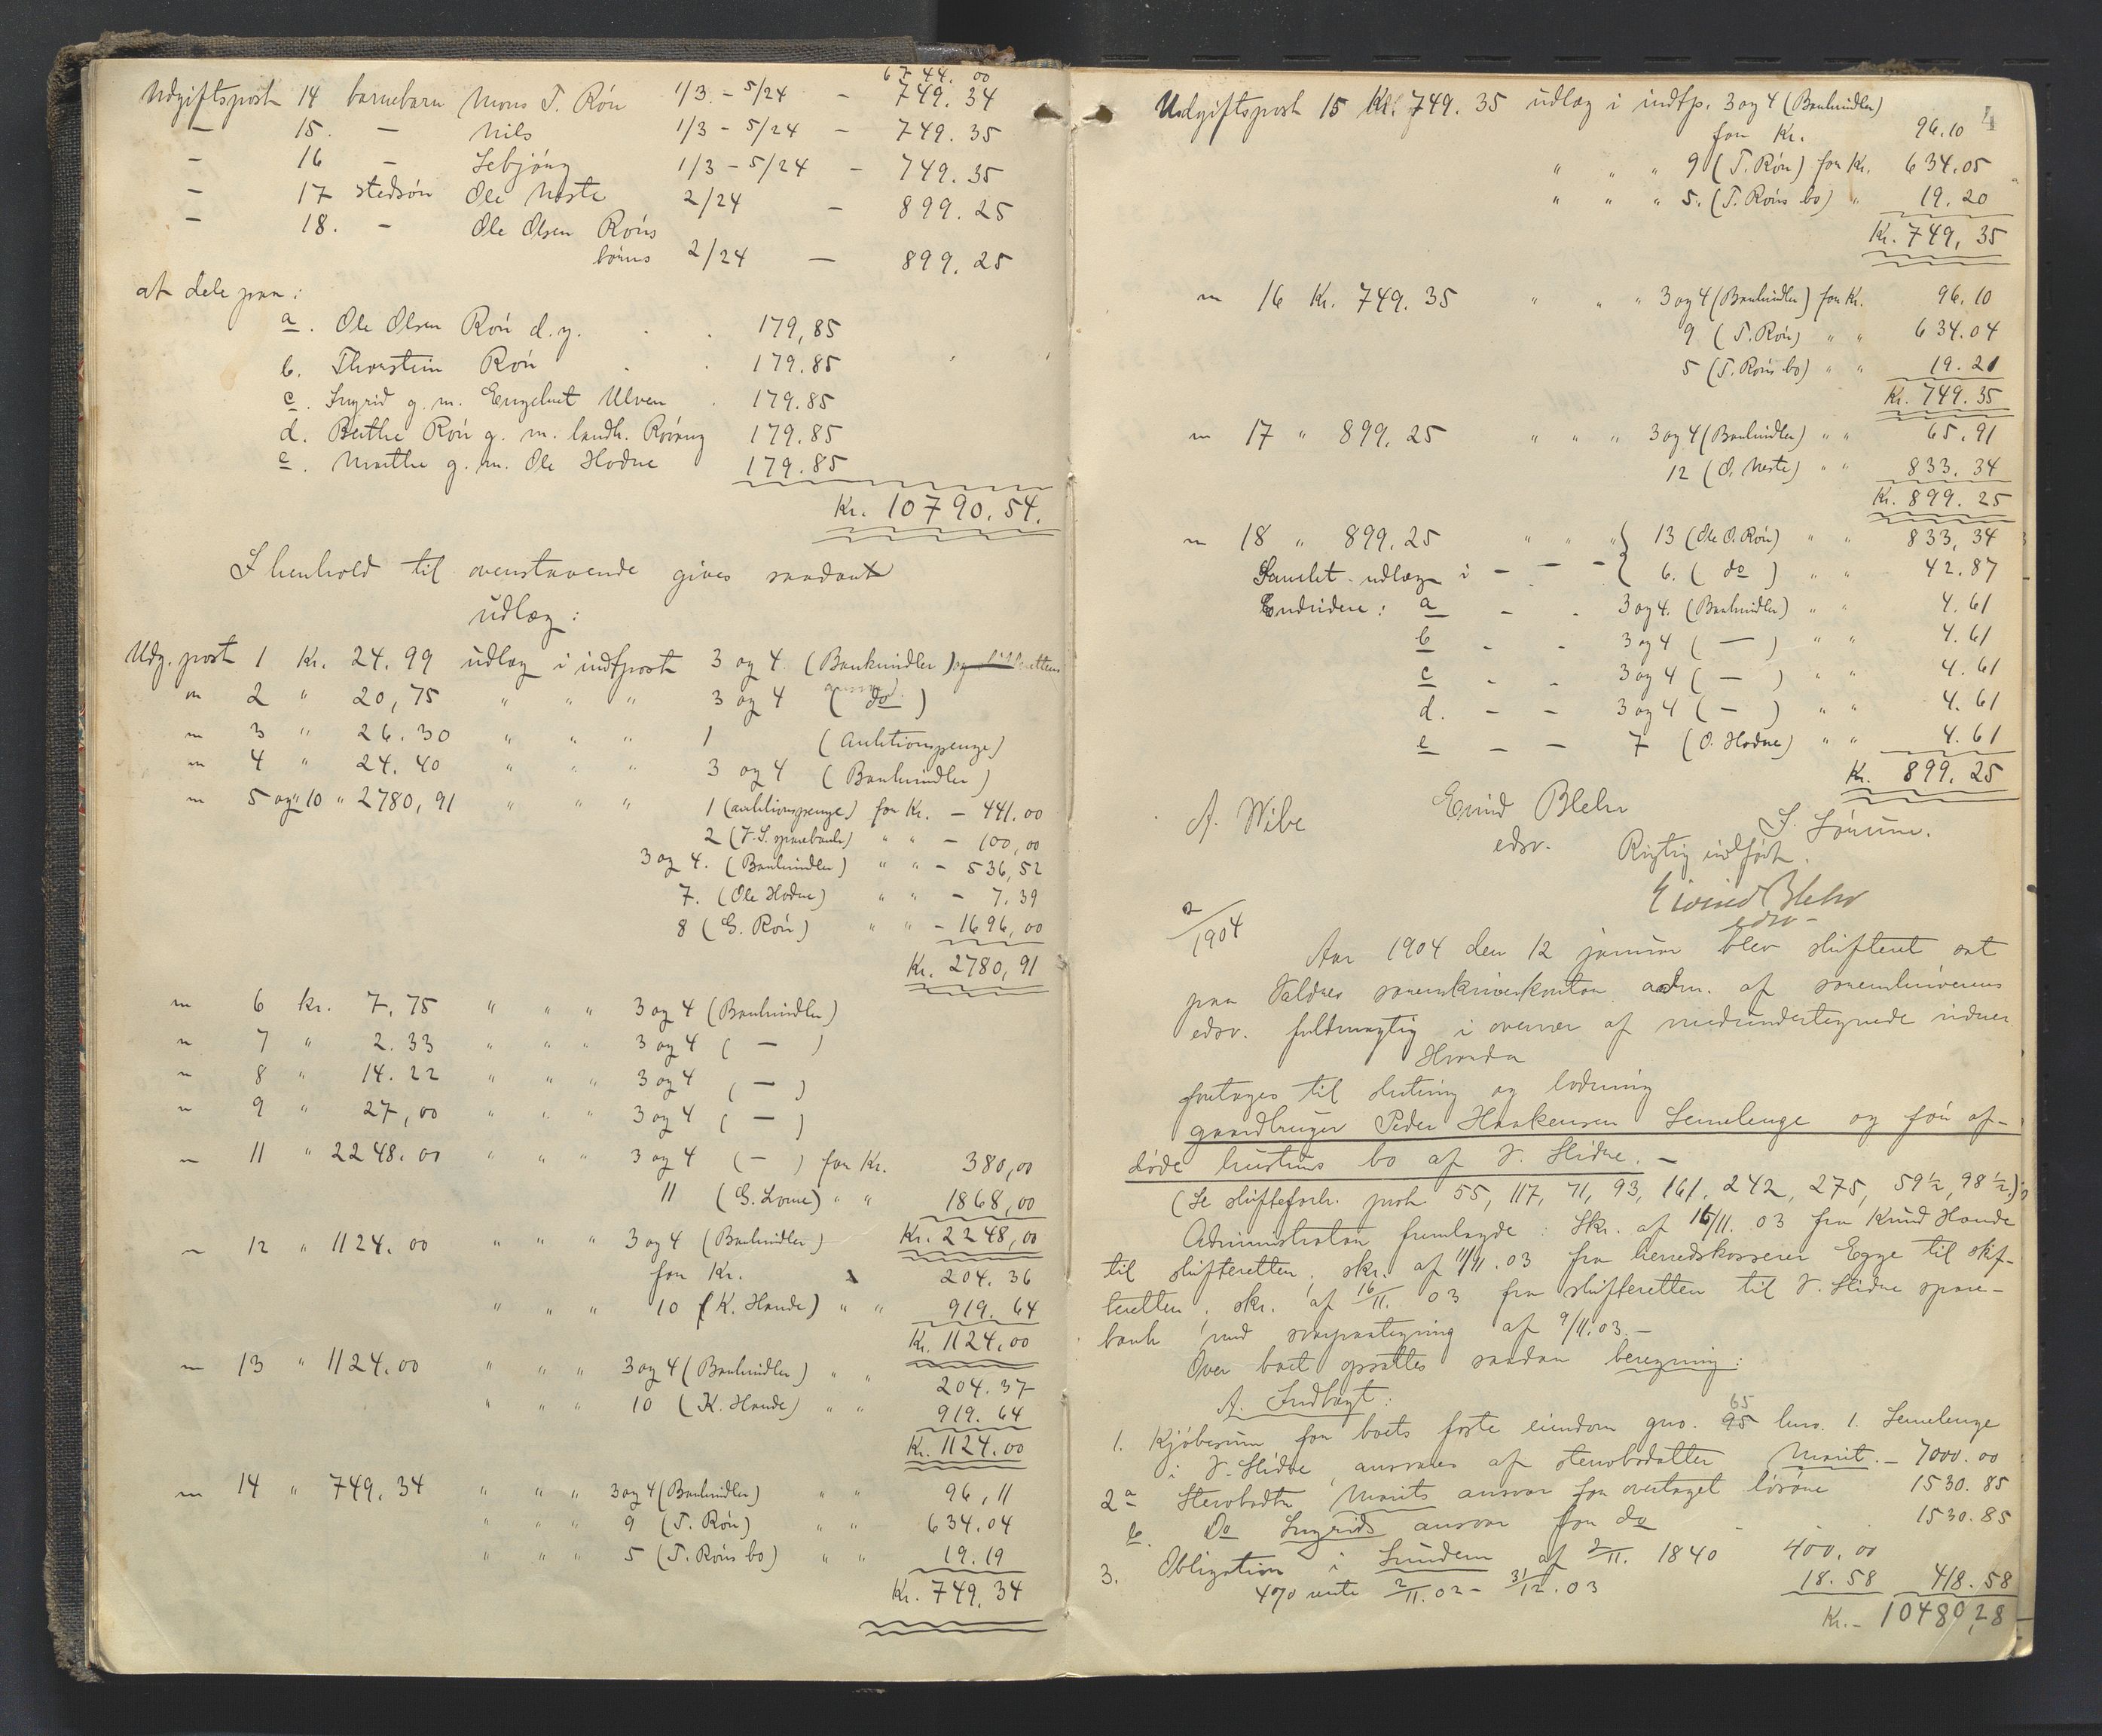 6744.00
Udgiftspost 14 barnebarn Mons T. Røn 1/3 - 5/24 - 749.34
- 15. - Nils 1/3 - 5/24 - 749.35
- 16 - Sebjørg 1/3 - 5/24 - 749.35
- 17 stedsøn Ole Neste 2/24 - 899.25
- 18. - Ole Olsen Røns
børns 2/24 - 899.25
at dele paa:
a. Ole Olsen Røn d.y. 179,85
b. Thorstein Røn 179.85
c. Ingrid g. m. Engebret Ulven 179.85
d. Berthe Røn g. m. landh. Rovang 179.85
e. Marthe g. m. Ole Hodne 179.85
Kr. 10790.54.
I henhold til ovenstaaende gives saadant
udlæg:
Udg. post 1 Kr. 24.99 udlæg i indtpost 3 og 4 (Bankmidler)
" 2 " 20,75 " " " 3 og 4 (do)
" 3 " 26.30 " " " 1 (Auktionspenge)
" 4 " 24.40 " " " 3 og 4 (Bankmidler)
" 5 og 10 " 2780,91 " " " 1 (auktionspenge) for Kr. - 441.00
2 (V.S. sparebank) " " - 100,00
3 og 4. (Bankmidler) " " - 536,52
7. (Ole Hodne) " " - 7.39
8 (G. Røn) " " - 1696,00
Kr. 2780,91
" 6 kr. 7,75 " " " 3 og 4 (Bankmidler)
" 7 " 2.33 " " " 3 og 4 ( — )
" 8 " 14.22 " " " 3 og 4 ( — )
" 9 " 27,00 " " " 3 og 4 ( — )
" 11 " 2248.00 " " " 3 og 4 ( — ) for Kr. 380,00
11 (G. Lome) " " 1868,00
Kr. 2248,00
" 12 " 1124.00 " " " 3 og 4 (Bankmidler)
for Kr. 204.36
" " " 10 (K. Hande) " " 919.64
Kr. 1124.00
" 13 " 1124.00 " " " 3 og 4 (Bankmidler) " " 204.37
" " " 10 (K. Hande) " " 919.64
Kr. 1124.00
" 14 " 749.34 " " " 3 og 4 (Bankmidler) " " 96,11
" " " 9 (T. Røn) " " 634.04
" " " 5 (T. Røns bo) " " 19.19
Kr. 749,34
4
Udgiftspost 15 Kr. 749.35 udlæg i indtp. 3 og 4 (Bankmidler)
for Kr. 96.10
" " " 9 (T. Røn) for Kr. 634.05
" " " 5. (T. Røns bo) " 19.20
Kr. 749,35
" 16 Kr. 749.35 " " " 3 og 4 (Bankmidler) for Kr. 96.10
9 (T. Røn) " " 634.04
5 (T. Røns bo) " " 19.21
Kr. 749.35
" 17 " 899.25 " " " 3 og 4 (Bankmidler) " " 65.91
12 (O. Neste) " " 833.34
Kr. 899.25
" 18 " 899.25 " " " 13 (Ole O. Røn) " " 833,34
Samlet udlæg i - - - 6. ( do ) " " 42.87
Endvidere: a - - 3 og 4. (Bankmidler) " " 4.61
b - - 3 og 4 ( — ) " " 4.61
c - - 3 og 4 ( — ) " " 4.61
d. - - 3 og 4 ( — ) " " 4.61
e - - 7 (O. Hodne) " " 4.61
Kr. 899.25
A. Wibe Eivind Blehr
edsv. Rigtig indført.
Eivind Blehr
edsv-
2/1904
Aar 1904 den 12 januar blev skifteret sat
paa Valdres sorenskriverkontor adm. af sorenskriverens
edsv. fuldmægtig i overvær af medundertegnede vidner
Hvorda
foretages til slutning og lodning
gaardbruger Peder Haakensen Semelenge og før af-
døde hustrus bo af V. Slidre. -
(Se skifteforh. prot. 55, 117, 71, 93, 161, 242, 275, 59½, 98½.)
Administrator fremlagde: Skr. af 16/11. 03 fra Knud Hande
til skifteretten, skr. af 11/11.03 fra herredskasserer Egge til skif-
teretten, skr. af 16/11. 03 fra skifteretten til V. Slidre spare-
bank med svarpaategning af 9/11.03. -
Over boet opsattes saadan beregning:
A. Indtægt:
1. Kjøbesum for boets faste eiendom gno. 65 brno. 1. Semelenge
i V. Slidre, ansvares af stervbodatter Marit. - 7000.00
2 a Stervbodtr. Marits ansvar for overtaget løsøre 1530.85
b. Do Ingrids ansvar for do - 1530.85
3. Obligation i af 2/11. 1840 400,00
4% rente 2/11.02 - 31/12.03 18.58 418.58
Kr. - 10480,28